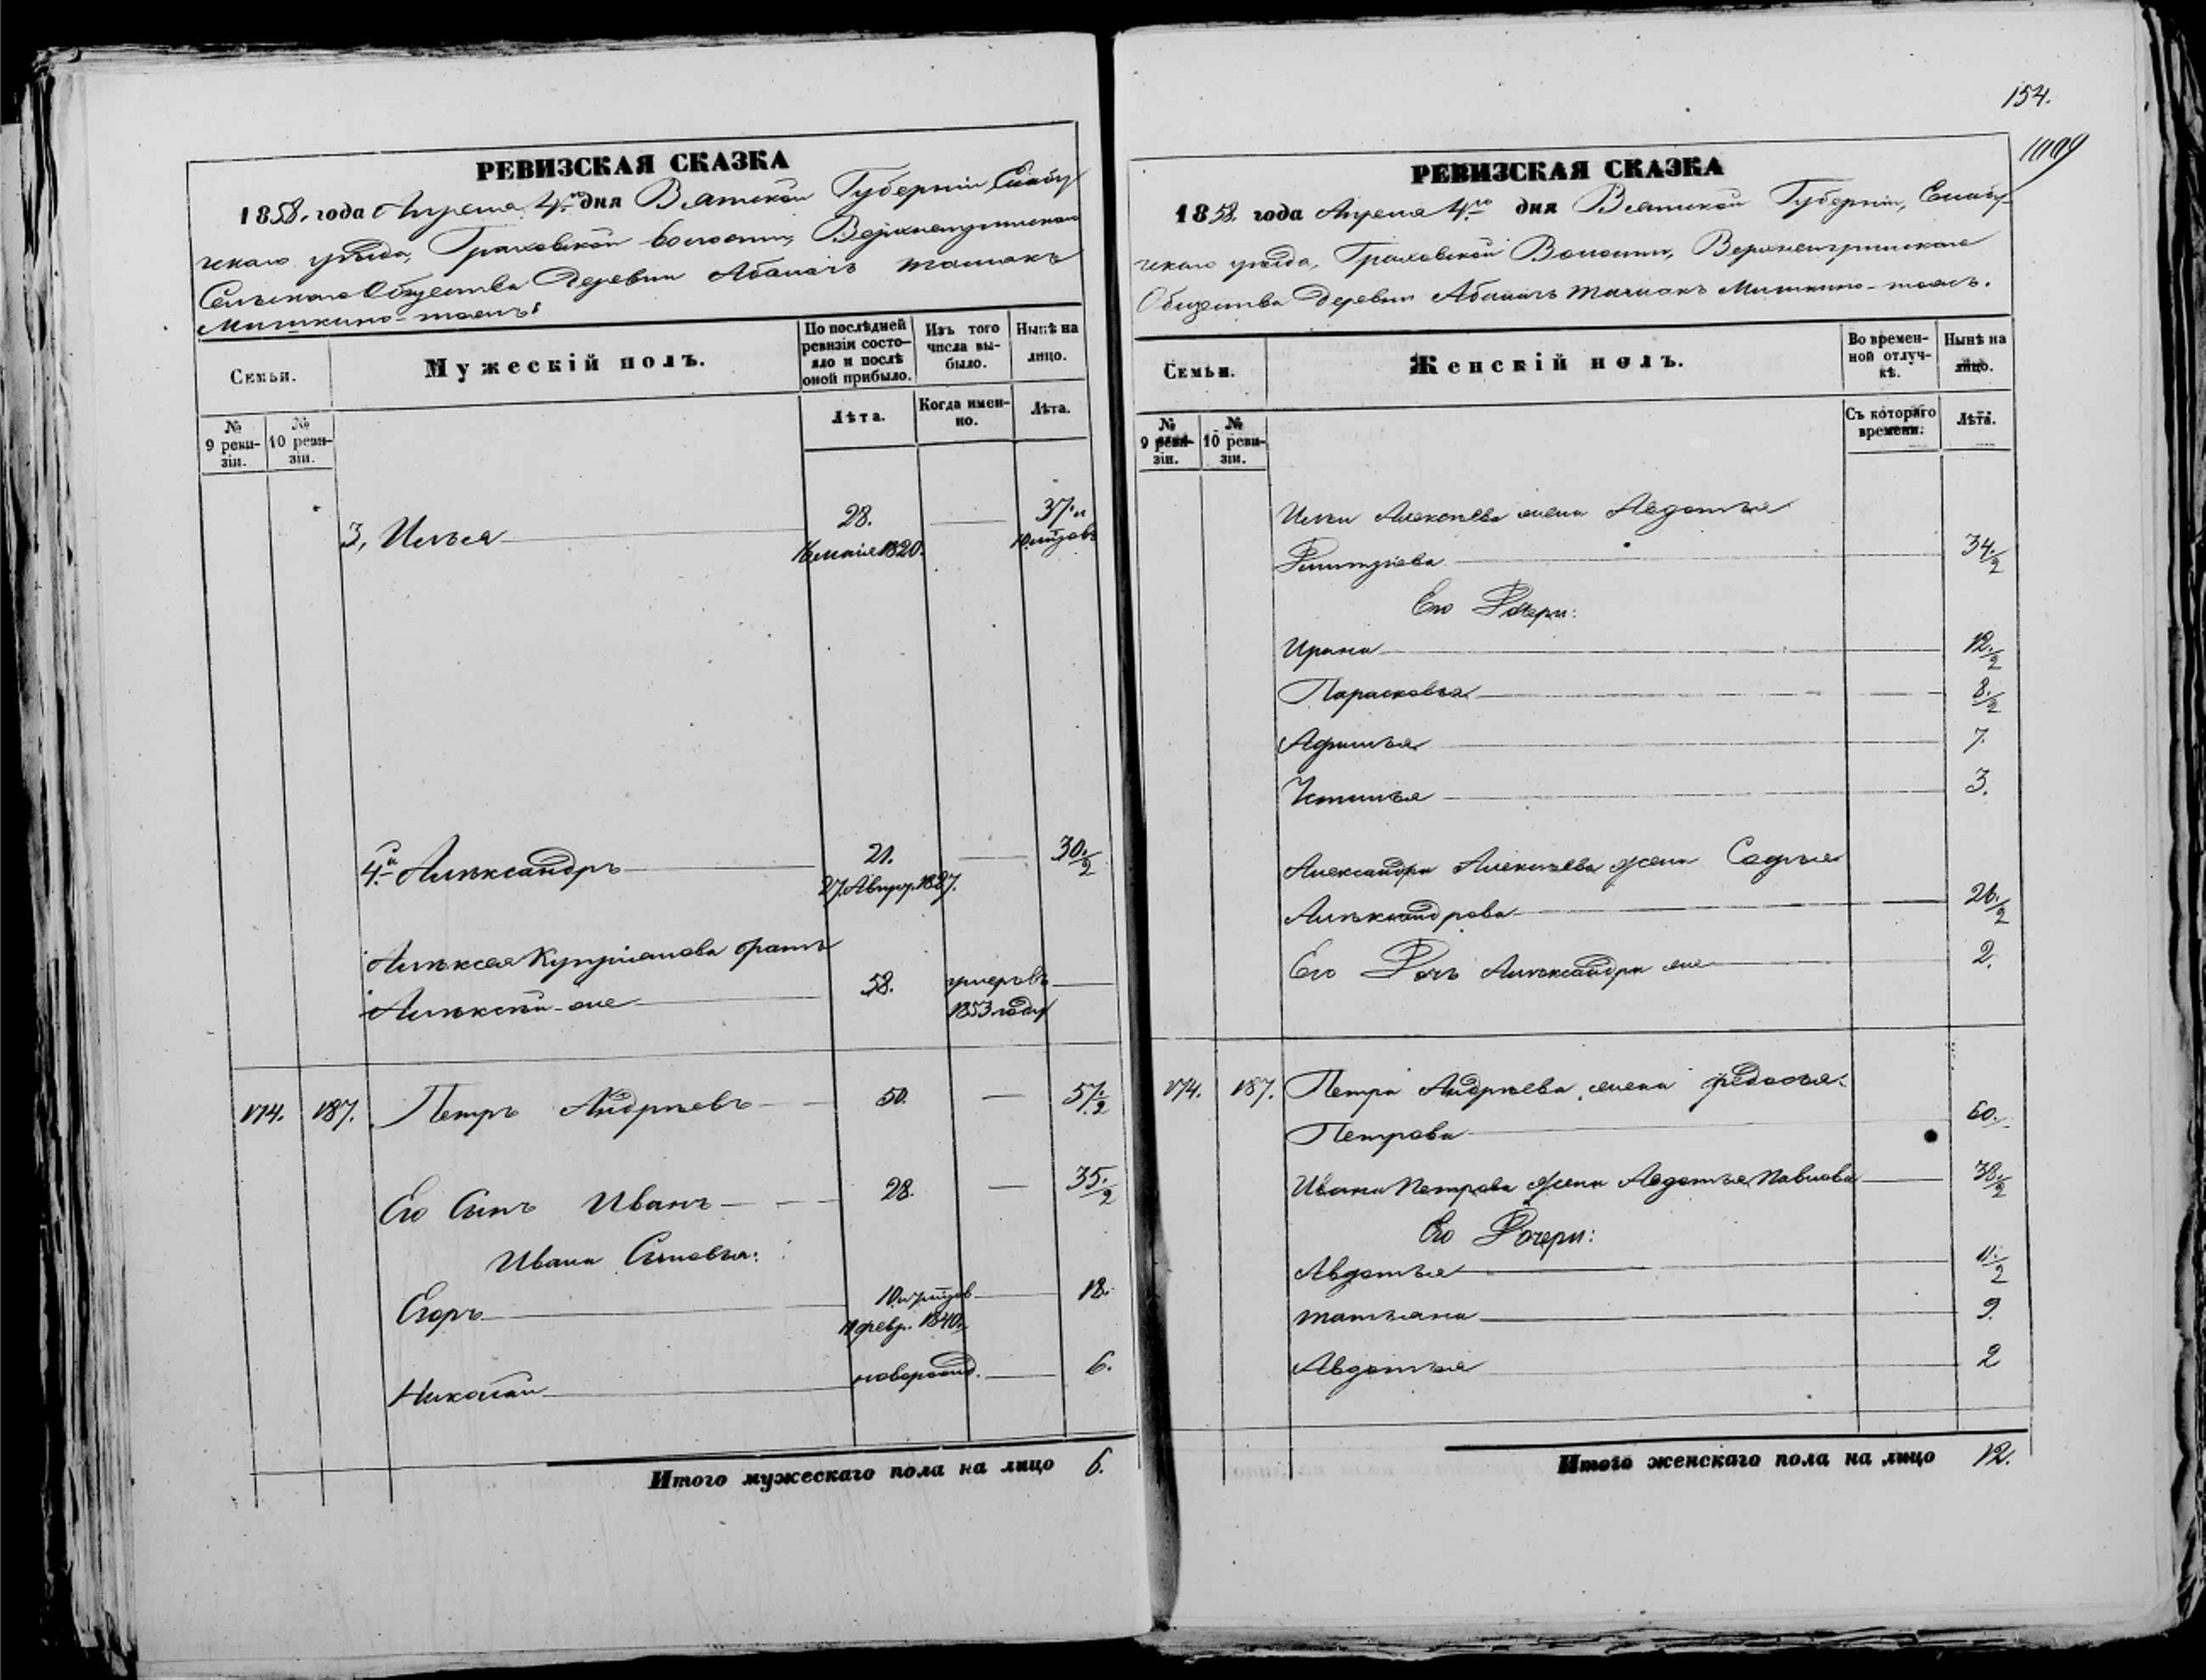 РЕВИЗСКАЯ СКАЗКА
1858. года Апреля 4го дня Вятской Губернии Елабу
жскаго уѣзда, Граховской волости,
Сельскаго Общества Деревни
154.
1009
РЕВИЗСКАЯ СКАЗКА
1858 года Апреля 4го дня Вятской Губернии, Елабу-
жскаго уѣзда, Граховской Волости,
Общества деревни
Семьи.
Мужескій полъ.
По послѣдней ревизіи состояло и послѣ оной прибыло.
Изъ того числа выбыло.
Нынѣ на лицо.
№ 9 ревизіи.
№ 10 ревизіи.
Лѣта.
Когда именно.
Лѣта.
3, Илья 28. 37. и
1820.
4й Александръ 21. 30. 1/2
27. 1827.
Алексея Куприанова братъ
Алексѣй-же 58. умеръ въ
1853 году
174. 187. Петръ Андреевъ 50. — 57. 1/2
Его Сынъ Иванъ 28. — 35. 1/2
Ивана Сыновья:
Егоръ 18.
11 февр. 1840.
Николай новорожд. 6.
Итого мужескаго пола на лицо 6.
Семьи.
Женскій полъ.
Во временной отлучкѣ.
Нынѣ на лицо.
№ 9 ревизіи.
№ 10 ревизіи.
Съ котораго времени.
Лѣта.
Ильи Алексѣева жена Авдотья
Дмитріева 34. 1/2
Его Дочери:
Ирина 12. 1/2
Парасковья 8. 1/2
Афимья 7.
Устинья 3.
Александра Алексѣева жена Софья
Александрова 26. 1/2
Его Дочь Александра же 2.
174. 187. Петра Андреева жена Федосья
Петрова 60.
Ивана Петрова жена Авдотья Павлова 38. 1/2
Его Дочери:
Авдотья 11. 1/2
Татьяна 9.
Авдотья 2
Итого женскаго пола на лицо 12.